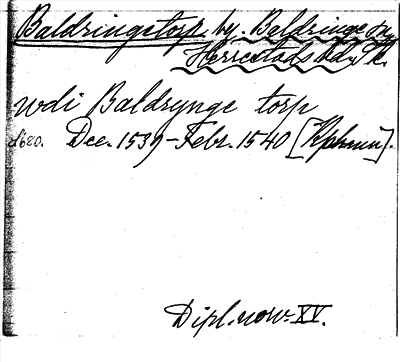 Baldringetorp by. Baldringe sn
Herrestads hd. Sk.
udi Baldrynge torp
s. 620. Dec. 1539-Febr. 1540 [Kphmn].
Dipl. norv. XV.